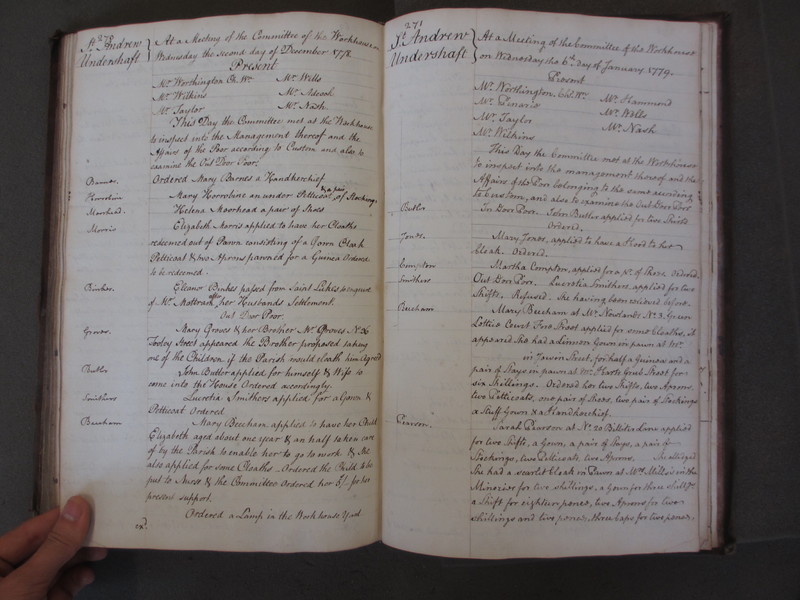 270
St. Andrew
Undershaft
At a Meeting of the Committee of the Workhouse on
Wednesday the second day of December 1778
Present
Mr. Worthington Ch. Wn. Mr. Wills
Mr. Wilkins Mr. Adcock
Mr. Taylor Mr. Nash
This Day the Committee met at the Workhouse
to inspect into the Management thereof and the
Affairs of the Poor according to Custom and also to
examine the Out Door Poor.
Barnes. Ordered Mary Barnes a Handkerchief
Mary Horrobine an under Petticoat & a pair of Stockings
Moorhead. Helena Moorhead a pair of Shoes
Morris Elizabeth Morris applied to have her Cloaths
redeemed out of Pawn consisting of a Gown Cloak
Petticoat & two Aprons pawned for a Guinea Ordered
to be redeemed.
Eleanor passed from Saint Lukes to enquire
of Mr. her Husbands Settlement.
Out Door Poor.
Groves. Mary Groves & her Brother Mr. Groves No. 26
Street appeared the Brother proposed taking
one of the Children if the Parish would cloath him Agreed
Butler John Butler applied for himself & Wife to
come into the House Ordered accordingly.
Smithers Lucretia Smithers applied for a Gown &
Petticoat Ordered
Beecham Mary Beecham applied to have her Child
Elizabeth aged about one year & an half taken care
of by the Parish to enable her to go to work & she
also applied for some Cloaths Ordered the Child to be
put to Nurse & the Committee Ordered her 5/- for her
present support.
Ordered a Lamp in the Workhouse Yard
exd.
271
St. Andrew
Undershaft
At a Meeting of the Committee of the Workhouse
on Wednesday the 6th. Day of January 1779.
Present
Mr. Worthington, Ch. Wn. Mr. Hammond
Mr. Mr. Wills
Mr. Taylor Mr. Nash
Mr. Wilkins
This Day the Committee met at the Workhouse
to inspect into the management thereof and the
Affairs of the Poor belonging to the same according
to Custom, and also to examine the Out Door Poor
Butler In Door Poor. John Butler applied for two Shirts
Ordered.
Jones. Mary Jones, applied to have a Hood to her
Cloak. Ordered.
Compton Martha Compton, applied for a pr. of Shoes. Ordered
Smithers Out Door Poor. Lucretia Smithers applied for two
Shifts, Refused. She having been relieved before.
Beecham Mary Beecham at Mr. Newlands No. 3 Green
Court Fore Street applied for some Cloaths, it
appeared she had a Linnen Gown in pawn at Mr.
in Jewin Street, for half a Guinea and a
pair of Stays in pawn at Mr. Grub Street for
six Shillings. Ordered her two Shifts, two Aprons,
two Petticoats, one pair of Shoes, two pair of Stockings
a Stuff Gown & a Handkerchief.
Pearson. Sarah Pearson at No. 20 Billiter Lane applied
for two Shifts, a Gown, a pair of Stays, a pair of
Stockings, two Petticoats, two Aprons. She alledged
She had a scarlet Cloak in Pawn at Mr. Mills's in the
Minories for two shillings, a Gown for three Shillgs.
a Shift for eighteen pence, two Aprons for two
shillings and two pence, three Caps for two pence.